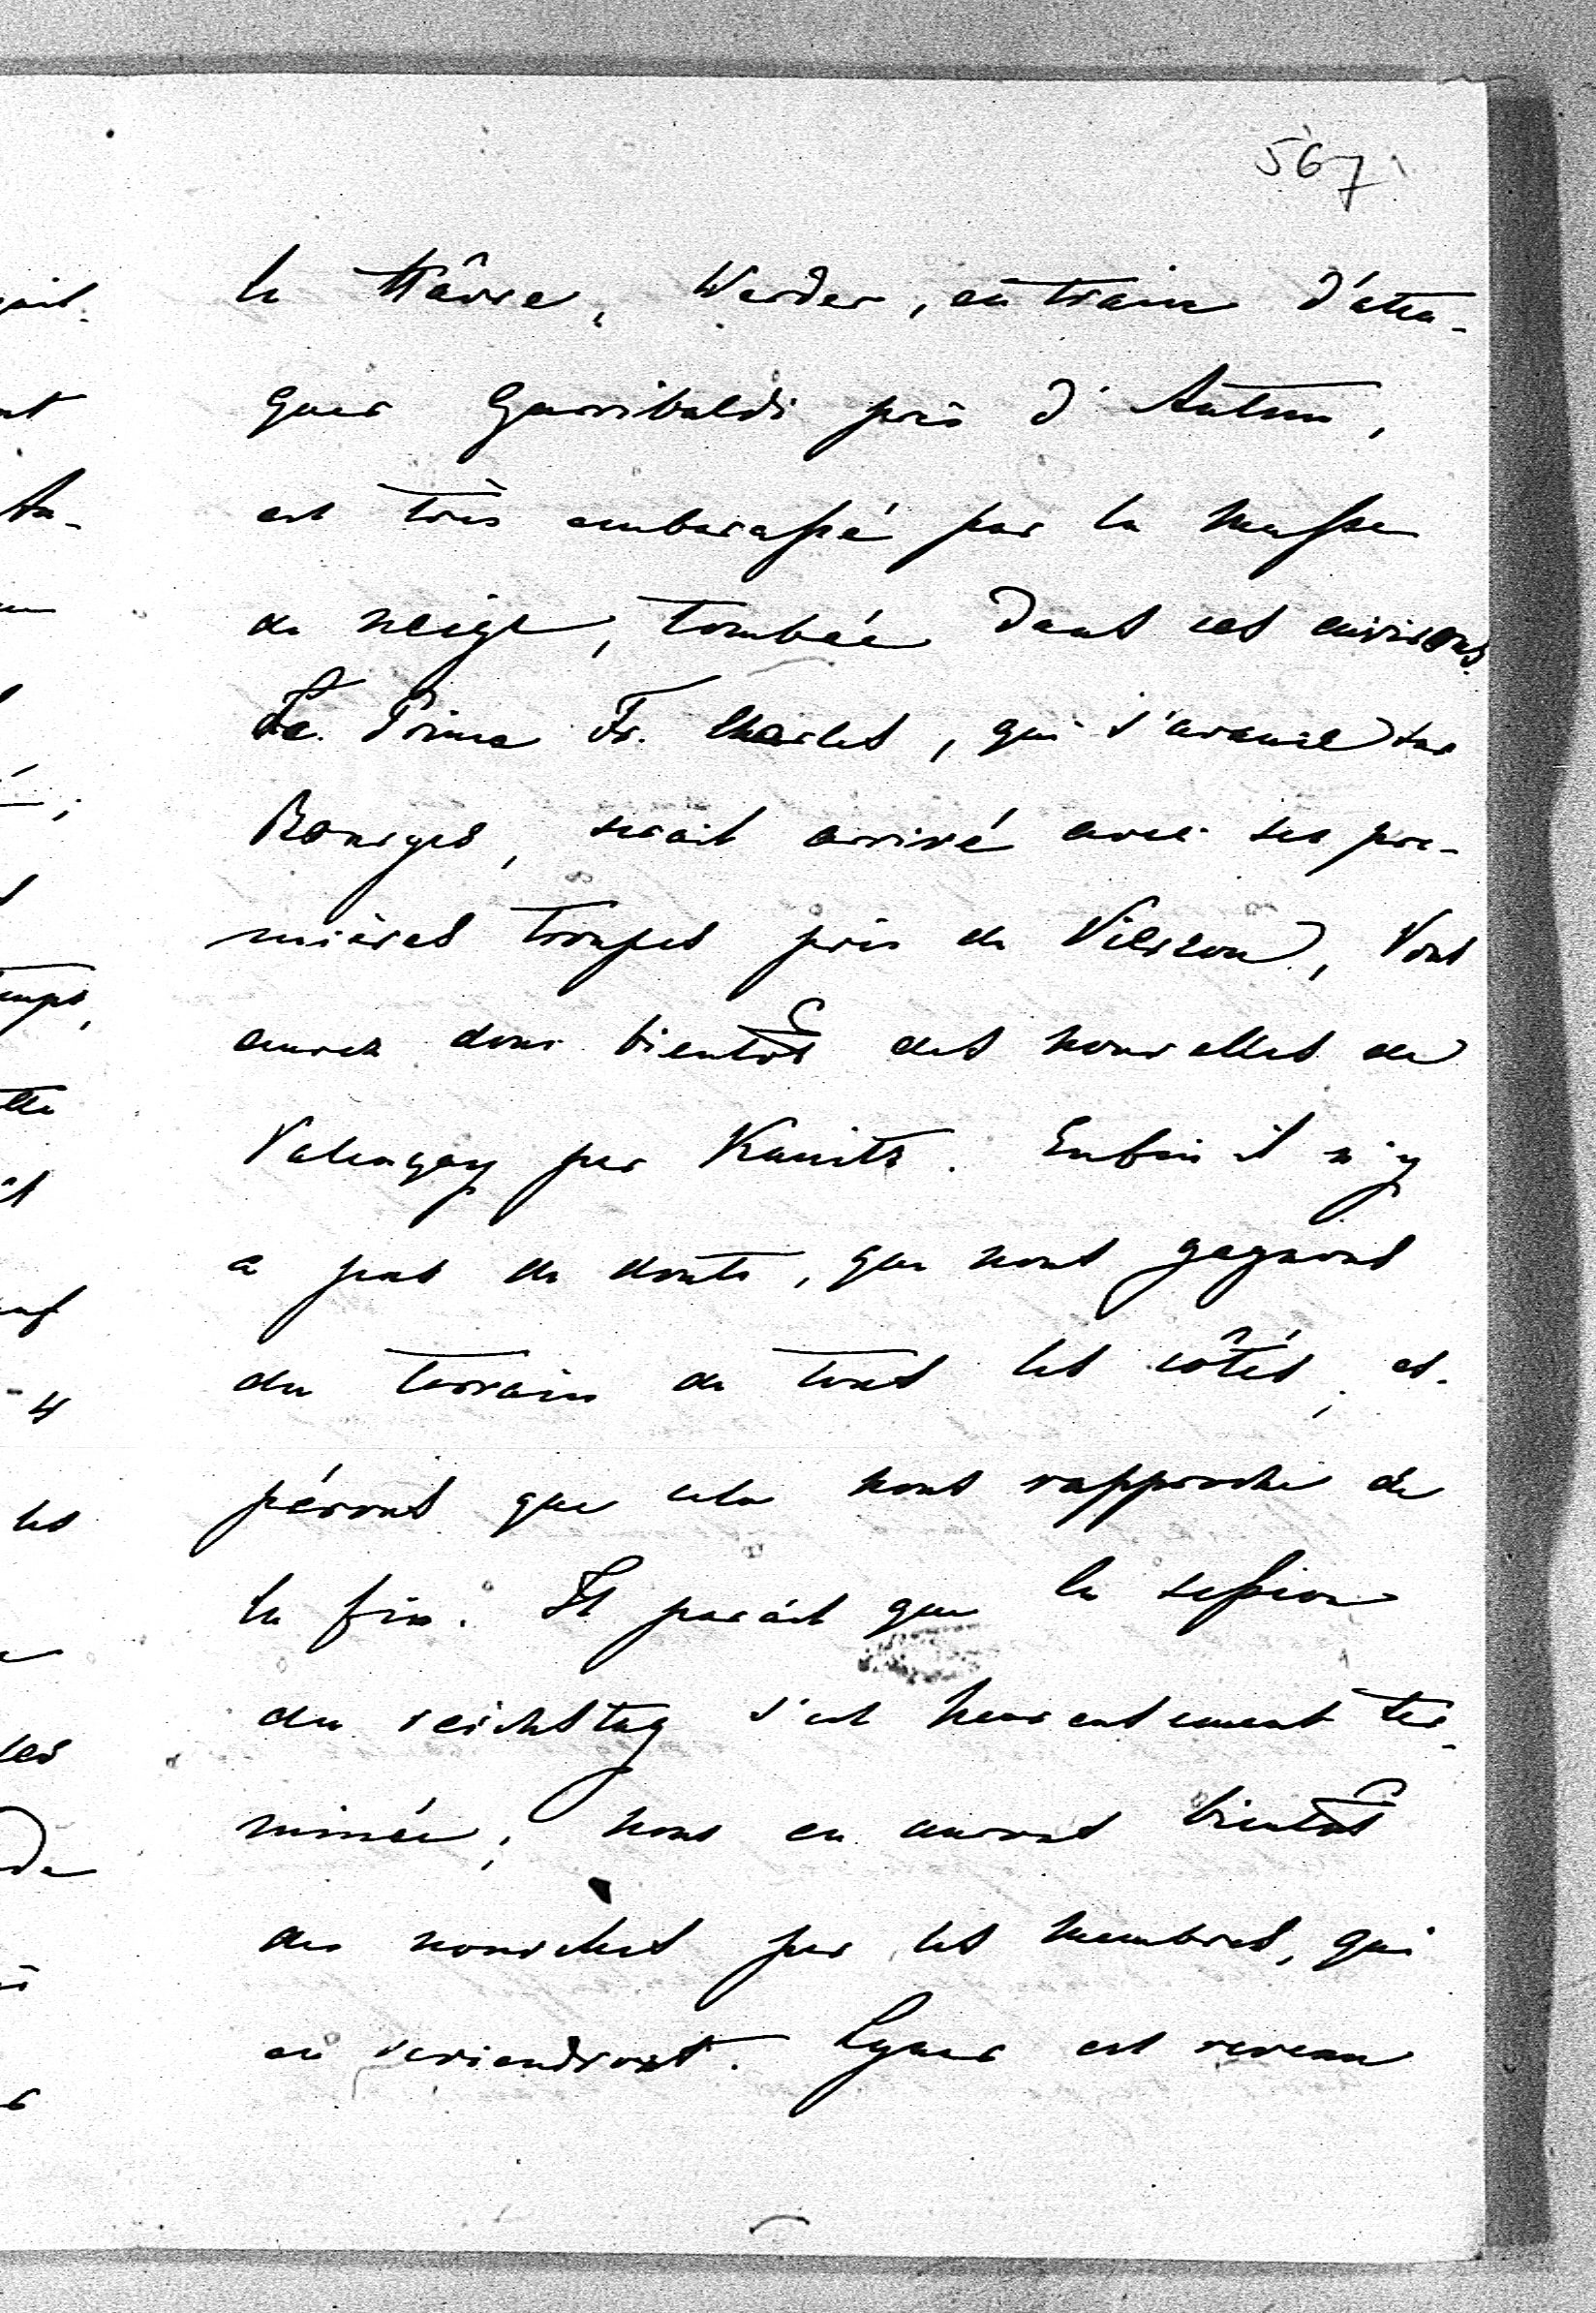 567
le Hâvre, Werder, en train d'atta-
quer Garribaldi près d'Autun,
est très embarassé par la masse
de neige, tombée dans ces environs.
Le Prince Fr. Charles, qui s'avance sur
Bourges, serait arrivé avec ses pre-
mières troupes près de Vierzon, Vous
aurez donc bientôt des nouvelles de
Valençay par Kanitz. Enfin il n'y
a pas de doute, que nous gagnons
du terrain de tous les côtés, es-
pérons que cela nous rapproche de
la fin. Il parait que la session
du reichstag s'est heureusement ter-
minée; nous en aurons bientôt
des nouvelles par les membres, qui
en reviendront. Lynar est revenu